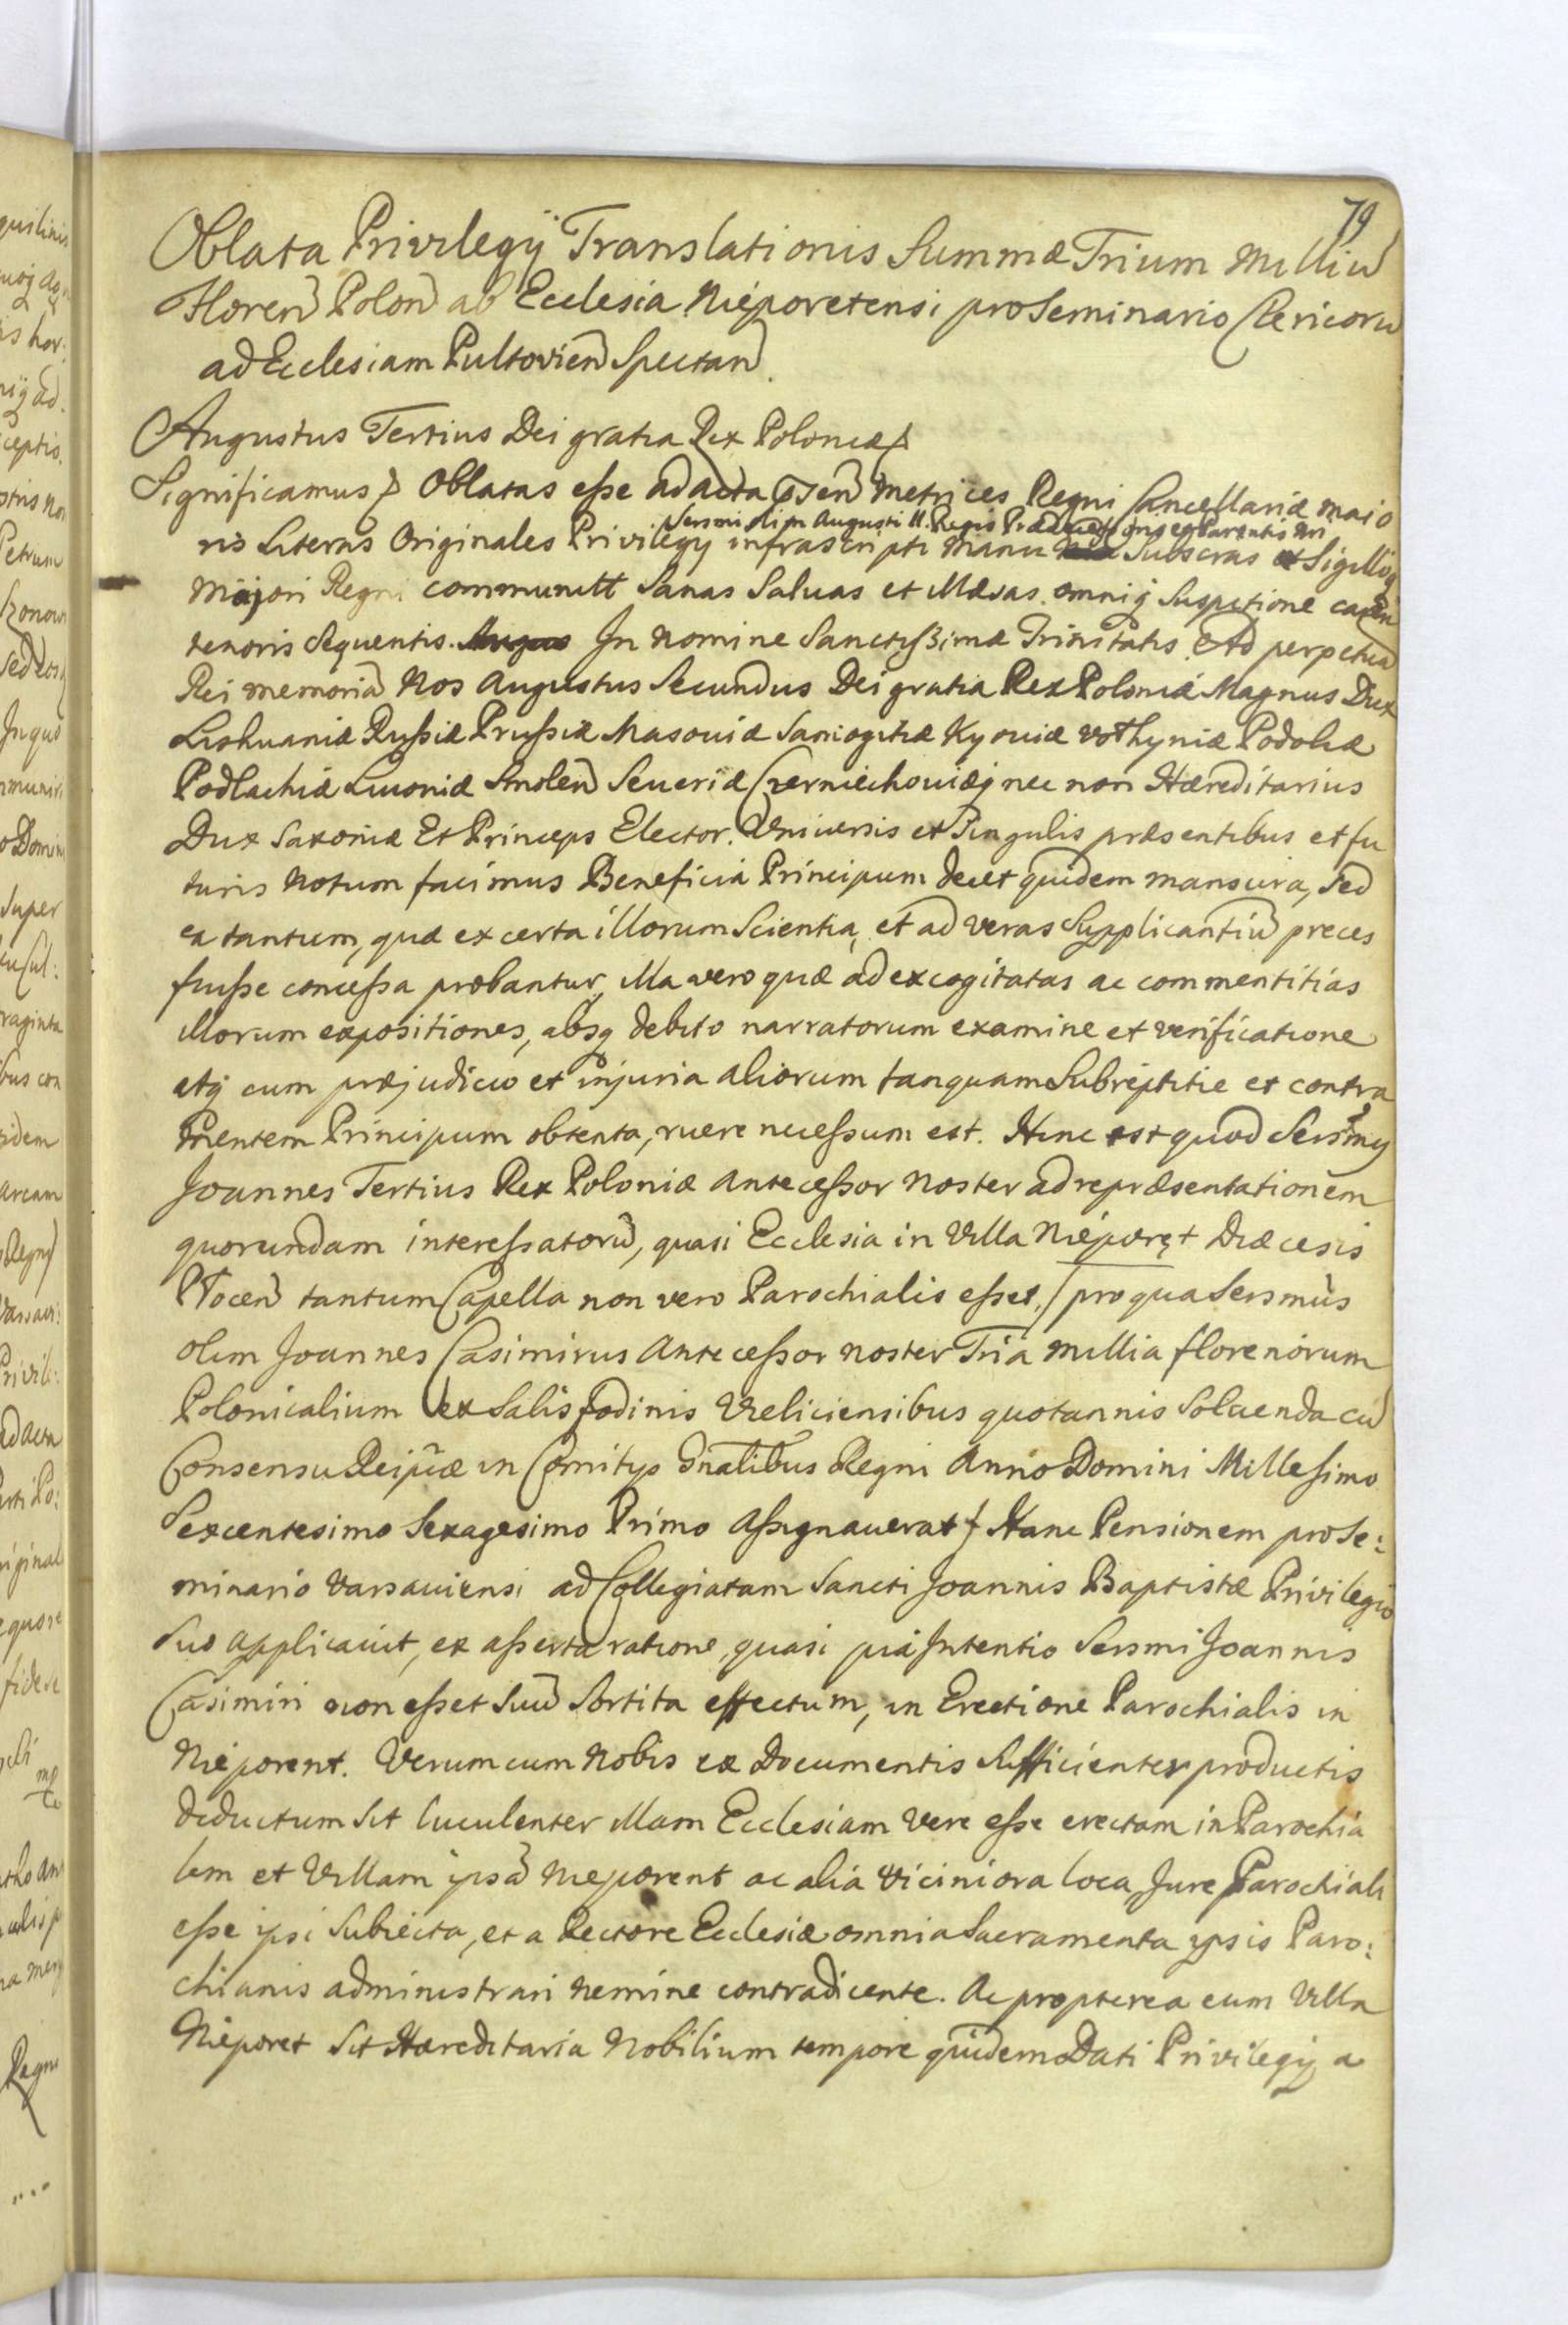 79
Oblata Privilegÿ Translationis Summæ Trium Milliū
Floren̄ Polon̄ ab Ecclesia Nieporetensi pro Seminario Clericorū
ad Ecclesiam Pultovien̄ Spectan̄.
Augustus Tertius Dei gratia Rex Poloniæ
Significamus Oblatas esse ad acta p̄sen̄ Metrices Regni Cancellariæ maio
Sersmi olim Augusti II. Regis Prædecessoris et Parentis nri
ris Literas Originales Privilegÿ infrascripti manu Subscras et Sigilloq
Majori Regni communitt Sanas Saluas et Illæsas omniq Suspitione caren̄
tenoris Sequentis. In Nomine Sanctissimæ Trinitatis. Ad perpetuā
Rei memoriā Nos Augustus Secundus Dei gratia Rex Poloniæ Magnus Dux
Lithuaniæ Russiæ Prussiæ Masouiæ Samogitiæ Kyouiæ Volhyniæ Podoliæ
Podlachiæ Liuoniæ Smolen̄ Seueriæ Czerniechouiæq nec non Hæreditarius
Dux Saxoniæ Et Princeps Elector. Vniuersis et Singulis præsentibus et fu
turis Notum facimus Beneficia Principum decet quidem mansura, sed
ea tantum, quæ ex certa illorum Scientia, et ad veras Supplicantiū preces
fuisse concessa probantur, Illa vero quæ ad excogitatas ac commentitias
Illorum expositiones, absq debito narratorum examine et verificatione
atq cum præjudicio et injuria aliorum tanquam Subreptitie et contra
Mentem Principum obtenta, ruere necessum est. Hinc est quod Sersmus
Joannes Tertius Rex Poloniæ Antecessor Noster ad repræsentationem
quorundam interessatorū, quasi Ecclesia in Villa Nieporęt Diæcesis
Plocen̄ tantum Capella non vero Parochialis esset, / pro qua Sersmus
olim Joannes Casimirus Antecessor noster Tria millia florenorum
Polonicalium ex Salisfodinis Vieliciensibus quotannis Soluenda cū
Consensu Reipūæ in Comitÿs Gnālibus Regni Anno Domini Millesimo
Sexcentesimo Sexagesimo Primo Assignauerat / Hanc Pensionem pro Se:
minario Varsauiensi ad Collegiatam Sancti Joannis Baptistæ Privilegio
Suo applicauit, ex asserta ratione, quasi pia Intentio Sersmi Joannis
Casimiri non esset Suū Sortita effectum, in Erectione Parochialis in
Nieporent. Verum cum Nobis ex Documentis Sufficienter productis
deductum Sit luculenter Illam Ecclesiam Vere esse erectam in Parochia
lem et Villam ipsā Nieporent ac alia Viciniora loca Jure Parochiali
esse ipsi Subiecta, et a Rectore Ecclesiæ omnia Sacramenta ipsis Paro:
chianis administrari nemine contradicente. Ac propterea cum Villa
Nieporet Sit Hæreditaria Nobilium tempore quidem Dati Privilegÿ a